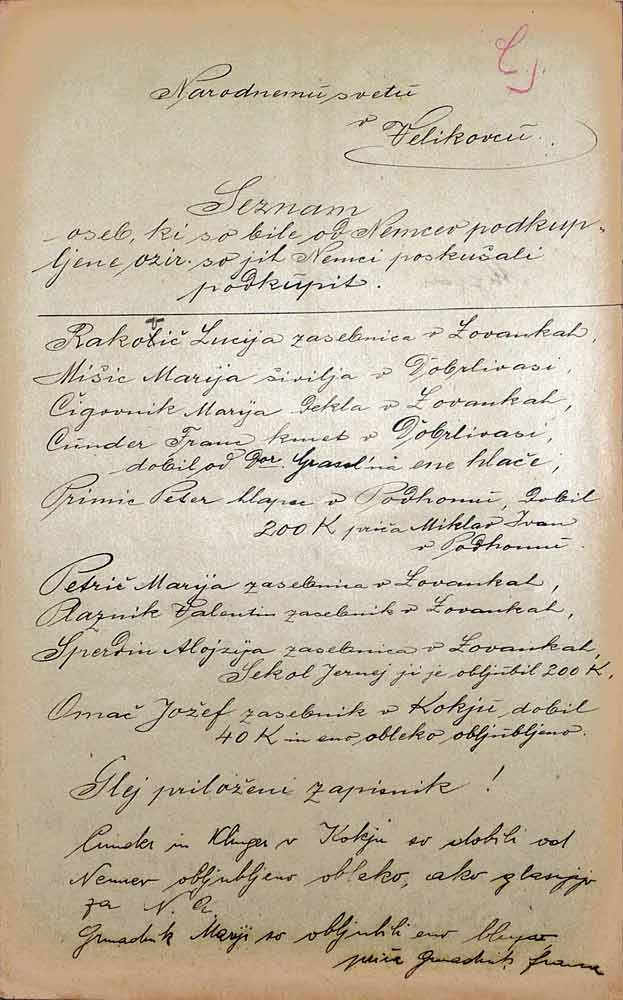 Narodnemu svetu
v
Velikovcu.
Seznam
oseb, ki so bile od Nemcev podkup-
ljene ozir. so jih Nemci poskušali
podkupit.
Lucija zasebnica v Lovankah,
Mišic Marija šivilja v Dobrlivasi,
Čigovnik Marija dekla v Lovankah,
Cunder Franc kmet v Dobrlivasi,
dobil od ene hlače;
Primic Peter hlapec v Podhomu, dobil
200 K priča Miklav Ivan
v Podhomu.
Petrič Marija zasebnica v Lovankah,
Raznik Valentin zasebnik v Lovankah,
Šperdin Alojzija zasebnica v Lovankah,
Sekol Jernej ji je obljubil 200 K,
Omač Jožef zasebnik v Kokju dobil
40 K in eno obleko obljubljeno.
Glej priloženi zapisnik!
Cunder in Kluger v Kokju so dobili od
Nemcev obljubljeno obleko, ako glasujejo
za N. A.
Mariji so obljubili eno
priča Franc